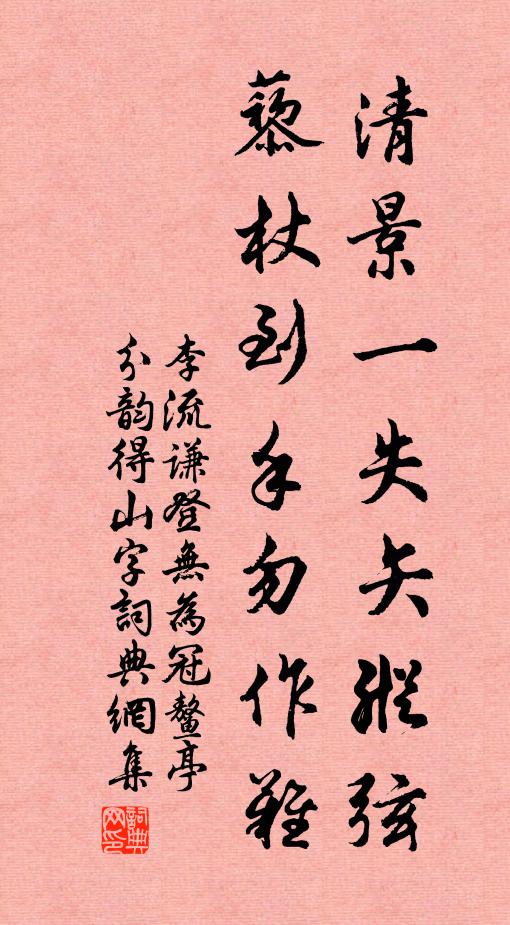 清景一失矢縱弦
藜杖到手勿作難
李流謙登無為冠鰲亭
分韻得山字詞典網集
詞典網印